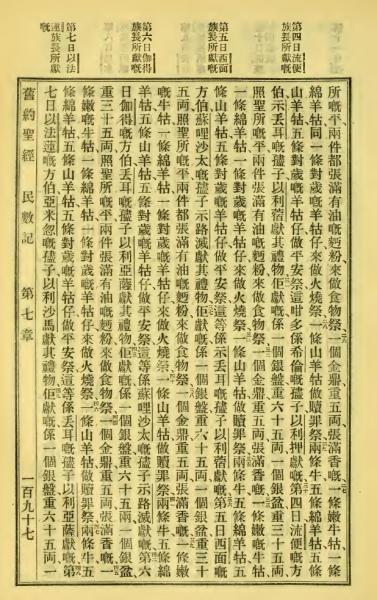 第四日流便
族長所獻嘅
第五日西面
族長所獻嘅
第六日伽得
族長所獻嘅
第七日以法
連族長所獻
嘅
所嘅平兩件都張滿有油嘅麪粉來做食物祭一個金鼎重五両張滿香嘅一條嫩牛牯一條
綿羊牯同一條對歲嘅羊牯仔來做火燒祭一條山羊牯做贖罪祭兩條牛五條綿羊牯五條
山羊牯五條對歲嘅羊牯仔做平安祭這咁多係希倫嘅孻子以利押獻嘅第四日流便方
伯示丟耳嘅孻子以利蓿獻其禮物佢獻嘅係一個銀盤重六十五両一個銀盆重三十五両
照聖所嘅平兩件張滿有油嘅麪粉來做食物祭一個金鼎重五両張滿香嘅一條嫩嘅牛牯
一條綿羊牯一條對歲嘅羊牯仔來做火燒祭一條山羊牯做贖罪祭兩條牛五條綿羊牯五
條山羊牯五條對歲嘅羊牯仔做平安祭這等係示丟耳嘅孻子以利蓿獻嘅第五日西面嘅
方伯蘇哩沙太嘅孻子示路滅獻其禮物佢獻嘅係一個銀盤重六十五両一個銀盆重三十
五両照聖所嘅平兩件都張滿有油嘅麪粉來做食物祭一個金鼎重五両張滿香嘅一條嫩
嘅牛牯一條綿羊牯一條對歲嘅羊牯仔來做火燒祭一條山羊牯做贖罪祭兩條牛五條綿
羊牯五條山羊牯五條對歲嘅羊牯仔做平安祭這等係蘇哩沙太嘅孻子示路滅獻嘅第六
日伽得嘅方伯丟耳嘅孻子以利亞薩獻其禮物佢獻嘅係一個銀盤重六十五兩一個銀盆
重三十五両照聖所嘅平兩件張滿有油嘅麪粉來做食物祭一個金鼎重五両張滿香嘅一
條嫩嘅牛牯一條綿羊牯一條對歲嘅羊牯仔來做火燒祭一條山羊牯做贖罪祭兩條牛五
條綿羊牯五條山羊牯五條對歲嘅羊牯仔做平安祭這等係丟耳嘅孻子以利亞薩獻嘅第
七日以法連嘅方伯亞米忽嘅孻子以利沙馬獻其禮物佢獻嘅係一個銀盤重六十五両一
舊約聖經 民數記 第七章 一百九十七